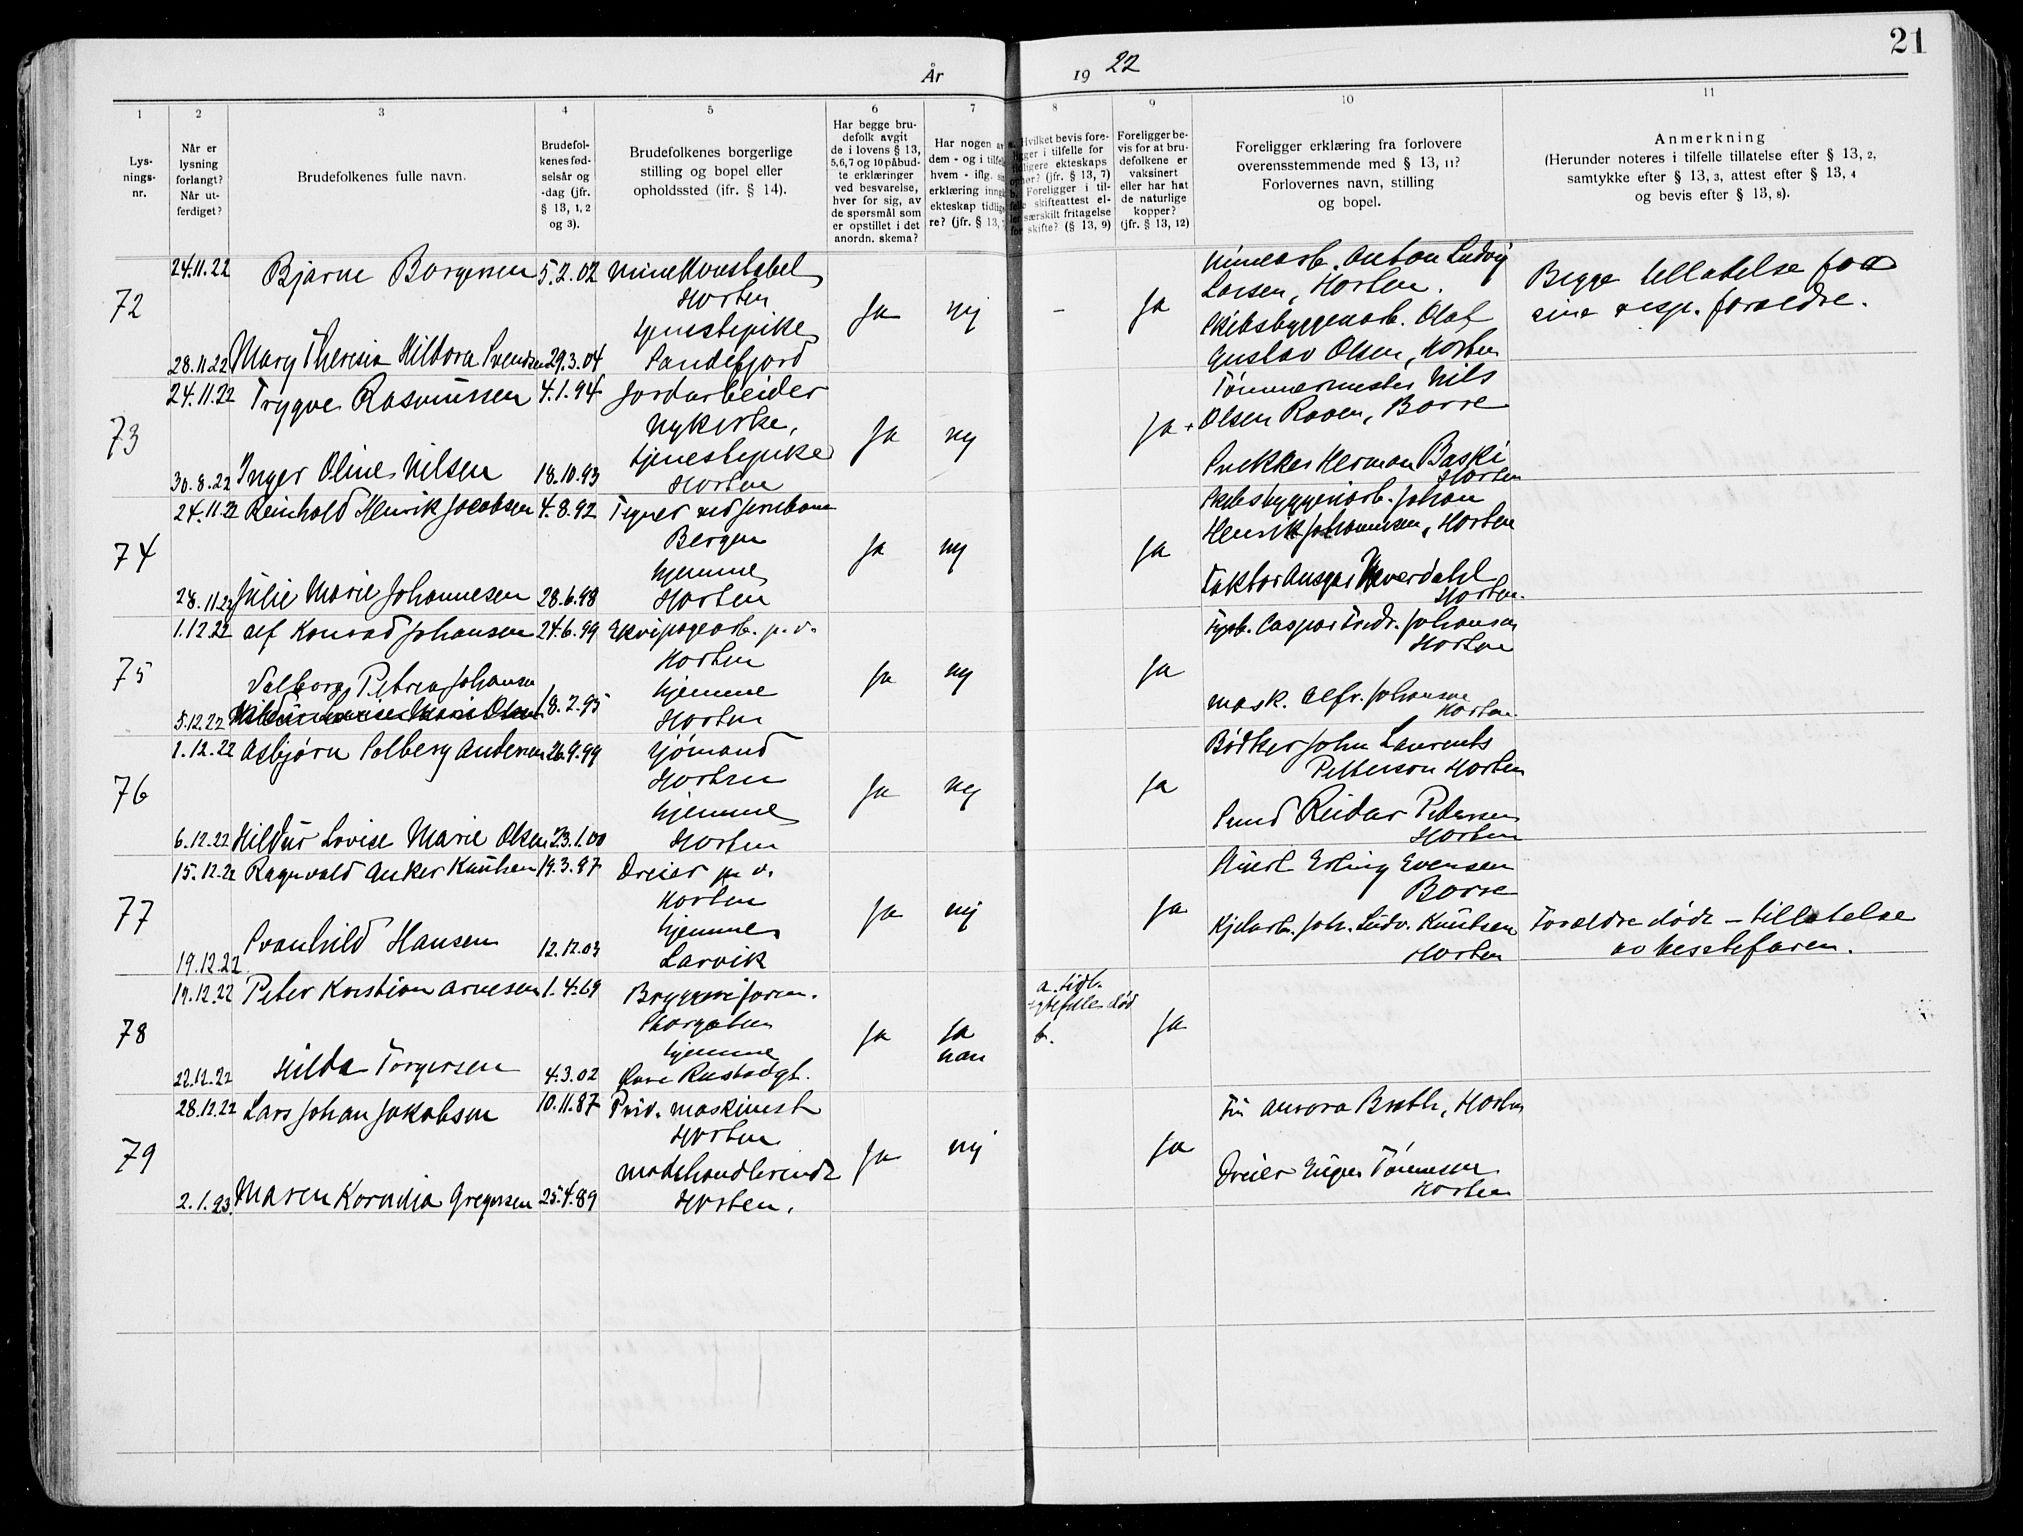 21
År 1922
1 2 3 4 5 6 7 8 9 10 11
Lys-
nings-
nr.
Når er
lysning
forlangt?
Når ut-
ferdiget?
Brudefolkenes fulle navn.
Brudefol-
kenes fød-
selsår og
-dag (jfr.
§ 13, 1, 2
og 3).
Brudefolkenes borgerlige
stilling og bopel eller
opholdssted (ifr. § 14).
Har begge bru-
defolk avgit
de i lovens § 13,
5,6,7 og 10 påbud-
te erklæringer
ved besvarelse,
hver for sig, av
de spørsmål som
er opstillet i det
anordn. skema?
Har nogen av
dem - og i tilfelle
hvem - iflg.
erklæring inngått
ekteskap tidlige-
re? (jfr. § 13,
Hvilket bevis fore-
ligger i tilfelle for
tidligere ekteskaps
ophør? (jfr. § 13, 7)
Foreligger i til-
felle skifteattest el-
ler særskilt fritagelse
for skifte? (§ 13, 9)
Foreligger be-
vis for at bru-
defolkene er
vaksinert
eller har hat
de naturlige
kopper?
(jfr. § 13, 12)
Foreligger erklæring fra forlovere
overensstemmende med § 13, 11?
Forlovernes navn, stilling
og bopel.
Anmerkning
(Herunder noteres i tilfelle tillatelse efter § 13, 2,
samtykke efter § 13, 3, attest efter § 13, 4
og bevis efter § 13, 8).
72
24.11.22 Bjarne Borgersen 5.2.02 Minekonstabel
Horten
tjenestepike
28.11.22 Mary Theresia Hilbora Svendsen 29.3.04 Sandefjord
Ja nej - Ja
Minearb. Anton Ludvig
Larsen, Horten.
Skibsbyggerarb. Olaf
Gustav Olsen, Horten
Begge tillatelse fra
sine resp. foreldre.
73
24.11.22 Trygve Rasmussen 4.1.94 Jordarbeider
Nykirke,
tjenestepike
30.8.22 Inger Oline Nilsen 18.10.93 Horten
Ja nej Ja
Tømmermester Nils
Olsen Raaen, Borre
Snekker Herman Baski
Horten
74
24.11.22 Reinhold Henrik Jacobsen 4.8.92 Tegner ved jernbane
Bergen
hjemme
28.11.22 Julie Marie Johannesen 28.6.98 Horten
Ja nej Ja
Skibsbyggeriarb. Johan
Henrik Johannesen, Horten
Faktor Ansgar Heverdahl
Horten.
75
1.12.22 Alf Konrad Johansen 24.6.99 Ekvipagearb. p. v.
Horten
Valborg Petrea Johansen hjemme
5.12.22 Hildur Lovise Marie Olsen 18.2.95 Horten
Ja nej Ja
Fyrb. Caspar Fredr. Johansen
Horten
mask. Alfr. Johansen
Horten.
76
1.12.22 Asbjørn Solberg Andersen 26.9.99 sjømand
Horten
hjemme
6.12.22 Hildur Lovise Marie Olsen 23.1.00 Horten
Ja nej Ja
Bødker John Laurents
Petterson Horten
Smed Reidar Petersen
Horten
77
15.12.22 Ragnvald Anker Knutsen 19.3.97 Dreier p. v.
Horten
hjemme
19.12.22 Svanhild Hansen 12.12.03 Larvik
Ja nej Ja
Erling Evensen
Borre
Kjelarb. Joh. Ludv. Knutsen
Horten
Foreldre døde - tillatelse
av bestefaren.
78
19.12.22 Peter Kristian Arnesen 1.4.69 Bryggeriform.
Storgaten
hjemme
22.12.22 Hilda Torgersen 4.3.02 Øvre Rustadgt.
Ja Ja
han
a. tidl.
egtefelle død
b.
Ja
79
28.12.22 Lars Johan Jakobsen 10.11.87 Priv. maskinist
Horten
Motehandlerinde
2.1.23. Maren Kornelia Gregersen 25.4.89 Horten.
Ja nej Ja
Frk Aurora Breth, Horten
Dreier Tønnesen
Horten